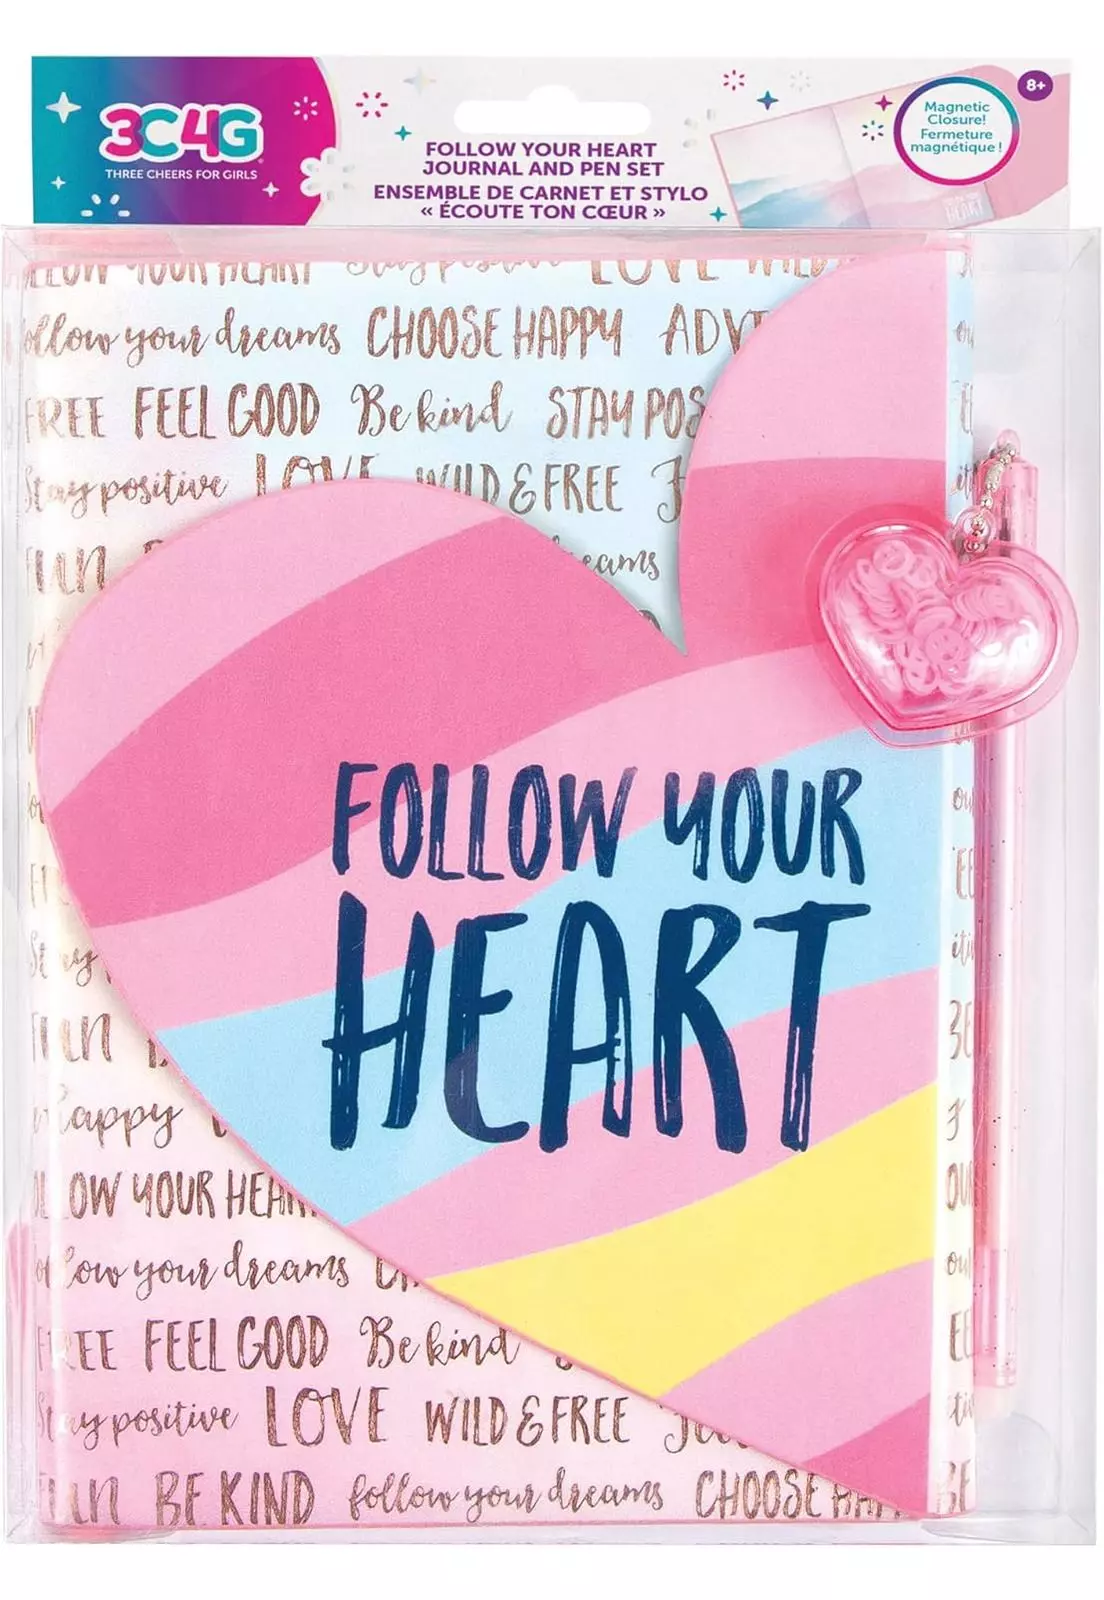 3C4G
THREE CHEERS FOR GIRLS
FOLLOW YOUR HEART
JOURNAL AND PEN SET
ENSEMBLE DE CARNET ET STYLO
« ÉCOUTE TON CŒUR »
Magnetic
Closure!
Fermeture
magnétique !
8+
HEART
YOUR HEART Stay positive LOVE WILD
follow your dreams CHOOSE HAPPY
FREE FEEL GOOD Be kind STAY
Stay positive LOVE WILD & FREE
FUN
FOLLOW YOUR
HEART
FUN
happy
YOUR HEART
follow your dreams
FREE FEEL GOOD Be kind
Stay positive LOVE WILD & FREE
FUN BE KIND follow your dreams CHOOSE HAPPY